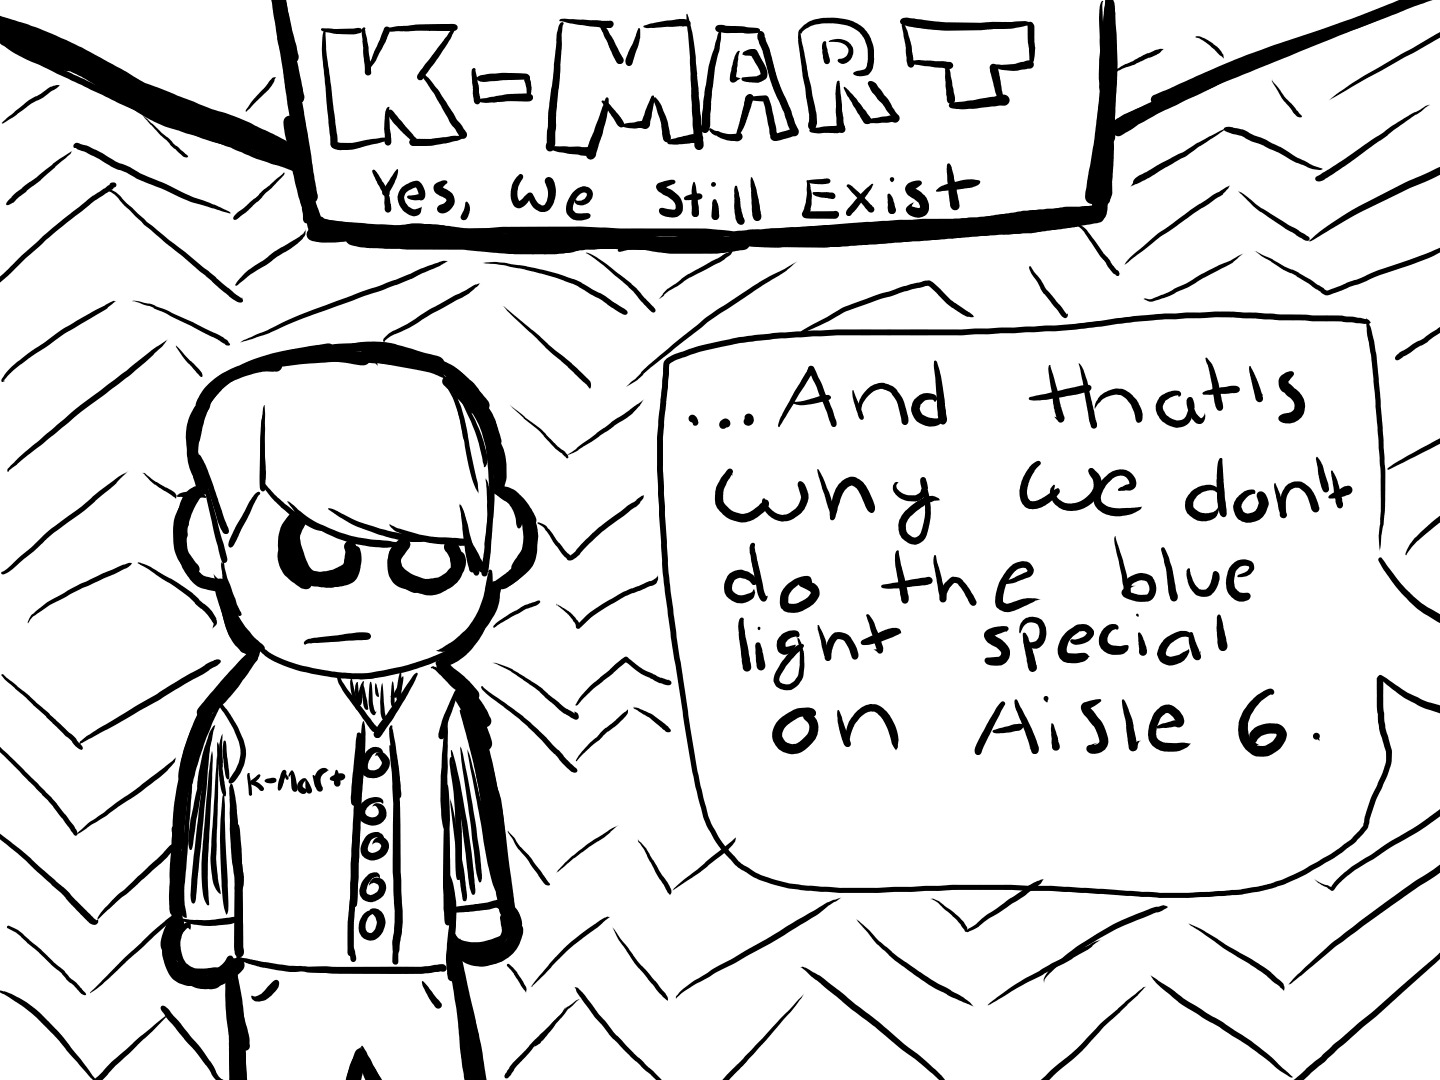 K-MART
Yes, We Still Exist
...And that's
why we don't
do the blue
light special
on Aisle 6.
K-Mart